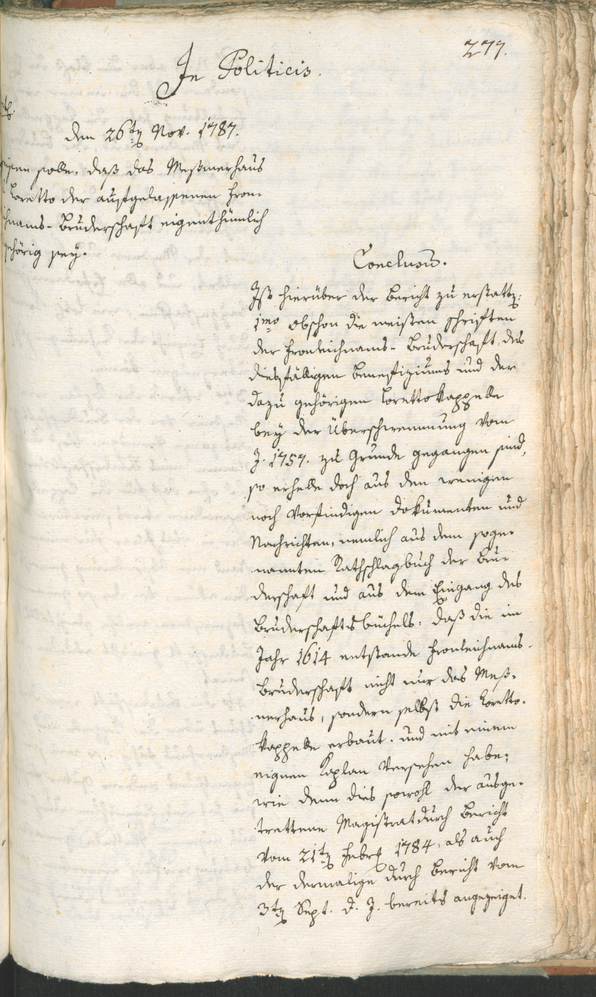 277.
In Politicis.
den 26ten Nov. 1787.
solle, daß das Meßmerhaus
Loretto der aufgelassenen Fron-
leichnams-Bruderschaft eigenthümlich
gehörig sey.
Conclusum.
Ist hierüber der Bericht zu erstatten:
1mo obschon die meisten Schriften
der Fronleichnams-Bruderschaft, des
diesfälligen Benefiziums und der
dazu gehörigen Lorettokappelle
bey der Überschwemmung vom
J. 1757. zu Grunde gegangen sind,
so erhelle doch aus den wenigen
noch vorfindigen Dokumenten und
Nachrichten, nemlich aus dem soge-
nannten Rathschlagbuch der Bru-
derschaft und aus dem Eingang des
Bruderschaftsbüchels: daß die im
Jahr 1614 entstandene Fronleichnams-
Bruderschaft nicht nur das Meß-
merhaus, sondern selbst die Loretto-
kappelle erbaut, und mit einem
eignen Kaplan versehen habe;
wie denn dies sowohl der ausge-
trettene Magistrat durch Bericht
vom 21ten Febr. 1784, als auch
der dermalige durch Bericht vom
3ten Sept. d. J. bereits angezeiget.